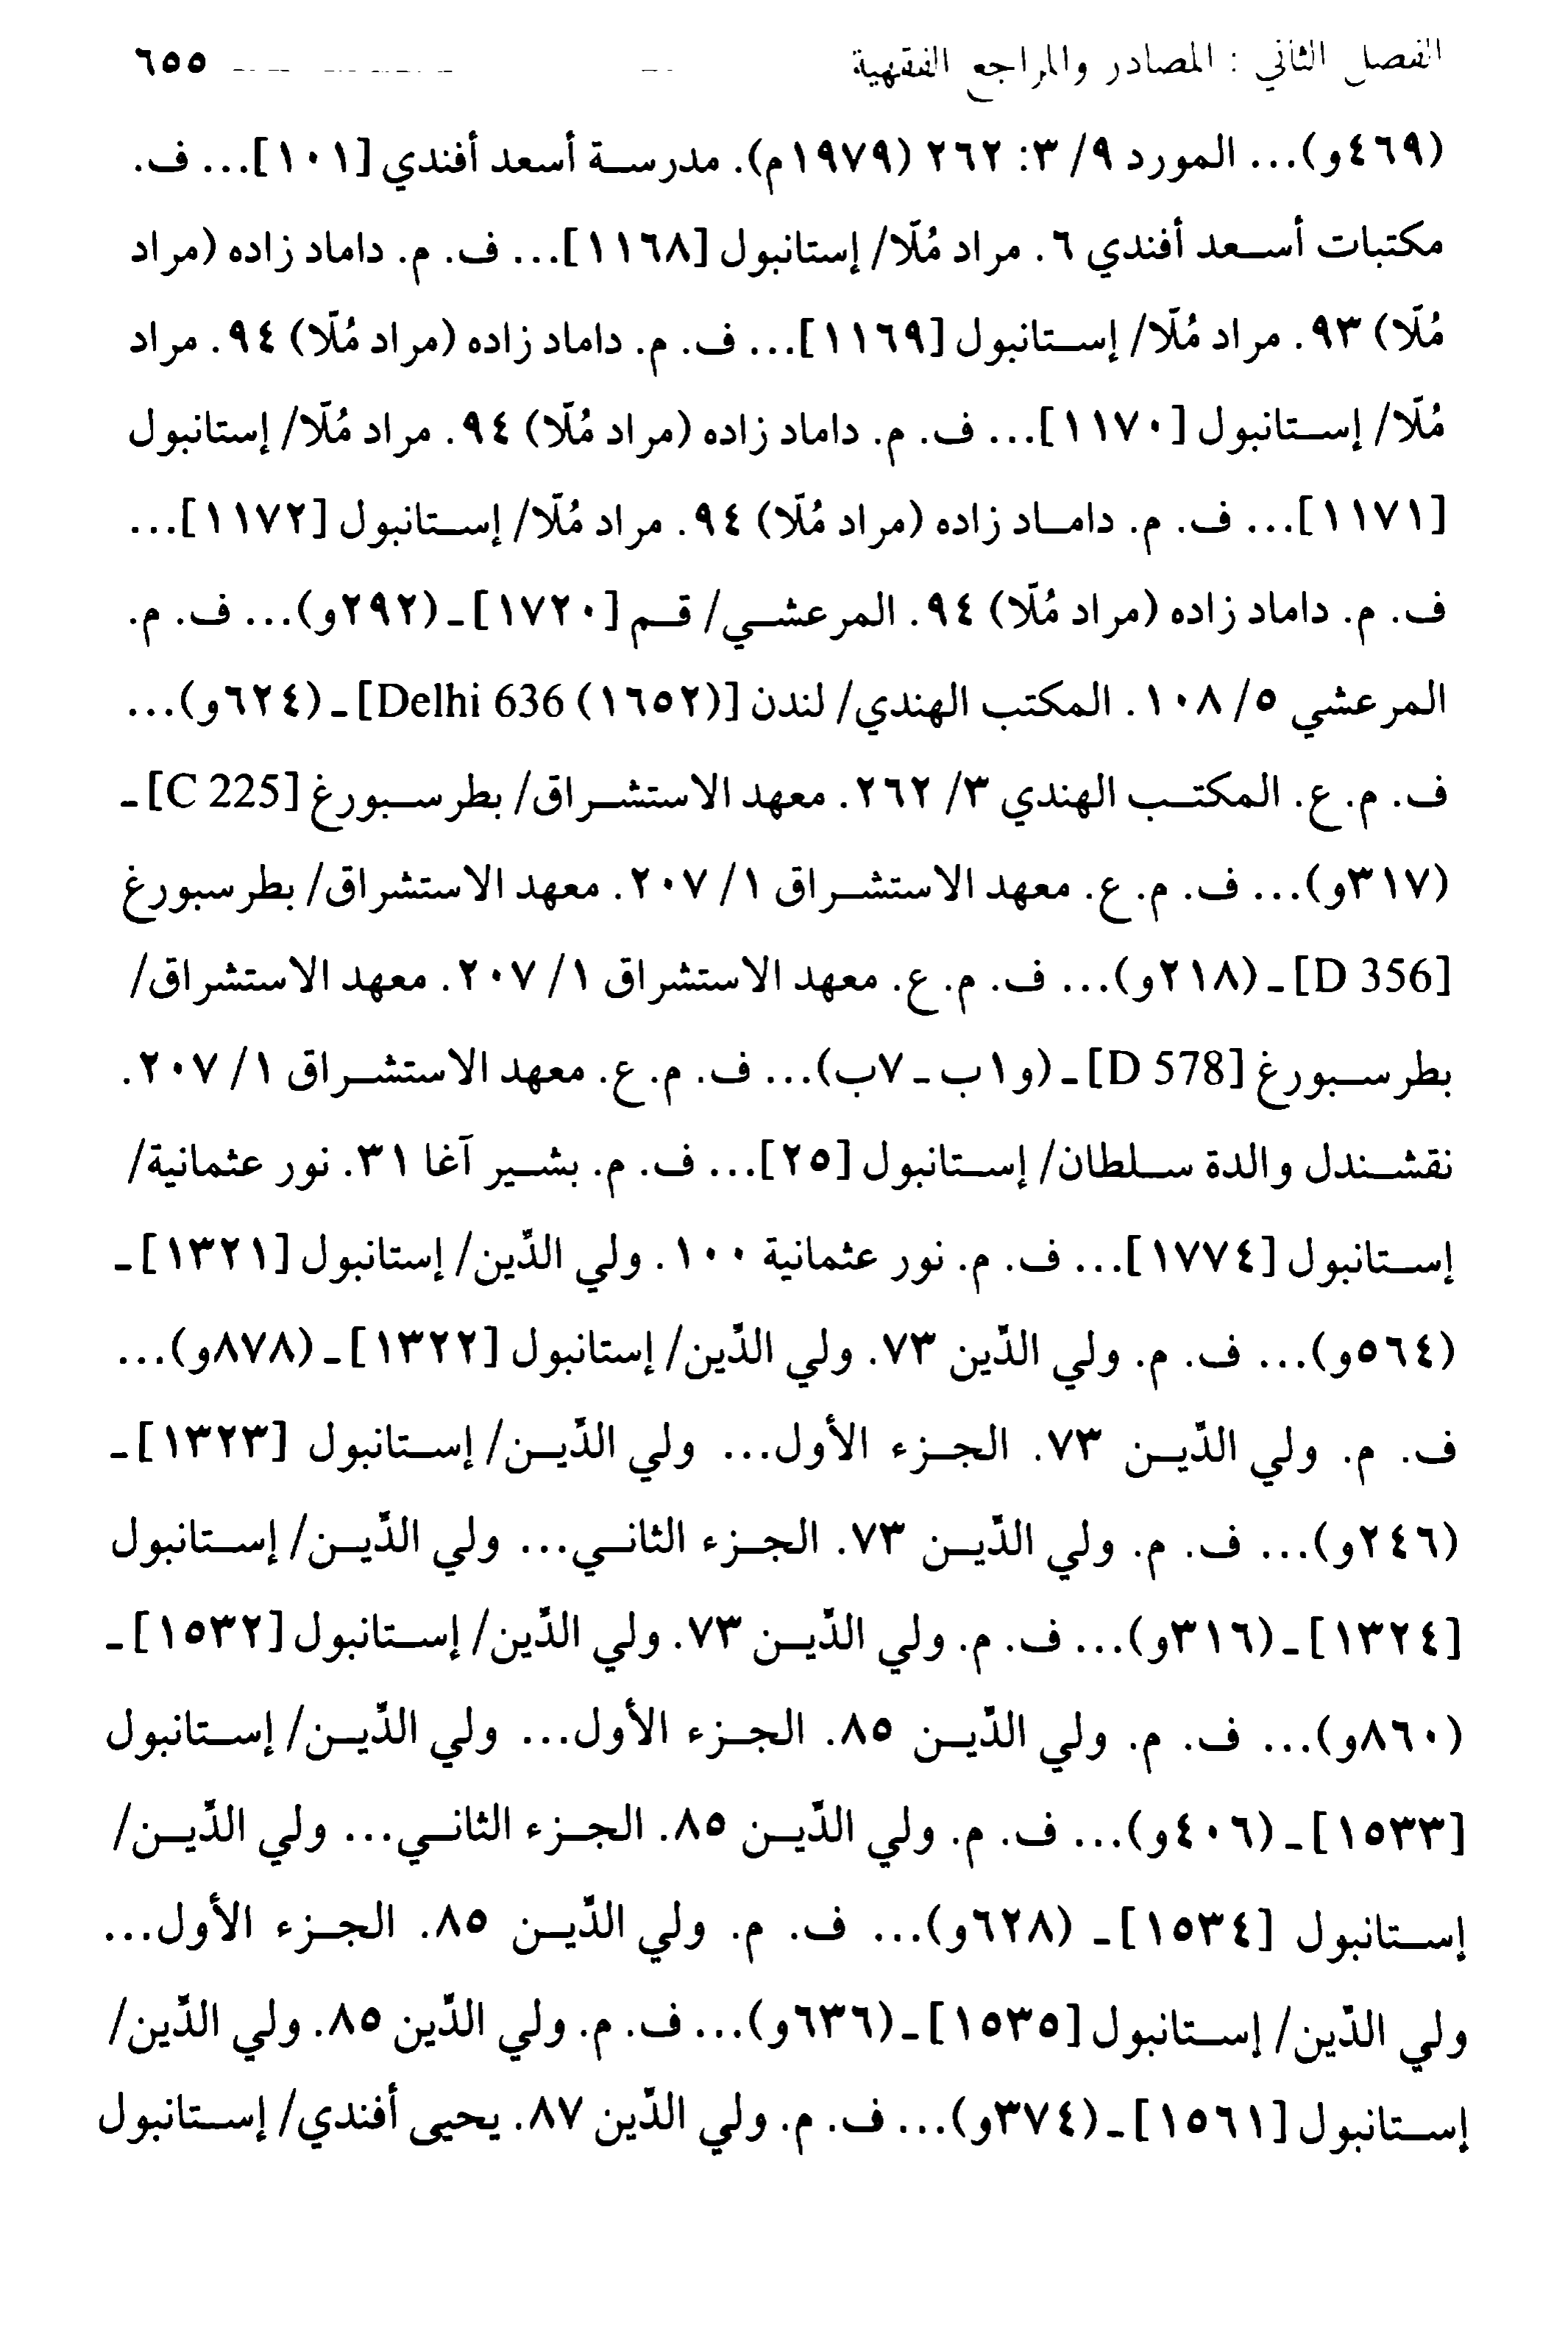 الفصل الثاني : المصادر والمراجع الفقهية ٦٥٥
(٤٦٩و)... المورد ٩/ ٣: ٢٦٢ (١٩٧٩م). مدرسة أسعد أفندي [١٠١]... ف.
مكتبات أسعد أفندي ٦. مراد مُلّا/ إستانبول [١١٦٨]... ف. م. داماد زاده (مراد
مُلّا) ٩٣. مراد مُلّا/ إستانبول [١١٦٩]... ف. م. داماد زاده (مراد مُلّا) ٩٤. مراد
مُلّا/ إستانبول [١١٧٠]... ف. م. داماد زاده (مراد مُلّا) ٩٤. مراد مُلّا/ إستانبول
[١١٧١]... ف. م. داماد زاده (مراد مُلّا) ٩٤. مراد مُلّا/ إستانبول [١١٧٢]...
ف. م. داماد زاده (مراد مُلّا) ٩٤. المرعشي/ قم [١٧٢٠] ـ (٢٩٢و)... ف. م.
المرعشي ٥/ ١٠٨. المكتب الهندي/ لندن [Delhi 636 (١٦٥٢)] ـ (٦٢٤و)...
ف. م. ع. المكتب الهندي ٣/ ٢٦٢. معهد الاستشراق/ بطرسبورغ [C 225] ـ
(٣١٧و)... ف. م. ع. معهد الاستشراق ١/ ٢٠٧. معهد الاستشراق/ بطرسبورغ
[D 356] ـ (٢١٨و)... ف. م. ع. معهد الاستشراق ١/ ٢٠٧. معهد الاستشراق/
بطرسبورغ [D 578] ـ (و١ب ـ ٧ب)... ف. م. ع. معهد الاستشراق ١/ ٢٠٧.
نقشندل والدة سلطان/ إستانبول [٢٥]... ف. م. بشير آغا ٣١. نور عثمانية/
إستانبول [١٧٧٤]... ف. م. نور عثمانية ١٠٠. ولي الدّين/ إستانبول [١٣٢١] ـ
(٥٦٤و)... ف. م. ولي الدّين ٧٣. ولي الدّين/ إستانبول [١٣٢٢] ـ (٨٧٨و)...
ف. م. ولي الدّين ٧٣. الجزء الأول... ولي الدّين/ إستانبول [١٣٢٣] ـ
(٢٤٦و)... ف. م. ولي الدّين ٧٣. الجزء الثاني... ولي الدّين/ إستانبول
[١٣٢٤] ـ (٣١٦و)... ف. م. ولي الدّين ٧٣. ولي الدّين/ إستانبول [١٥٣٢] ـ
(٨٦٠و)... ف. م. ولي الدّين ٨٥. الجزء الأول... ولي الدّين/ إستانبول
[١٥٣٣] ـ (٤٠٦و)... ف. م. ولي الدّين ٨٥. الجزء الثاني... ولي الدّين/
إستانبول [١٥٣٤] ـ (٦٢٨و)... ف. م. ولي الدّين ٨٥. الجزء الأول...
ولي الدّين/ إستانبول [١٥٣٥] ـ (٦٣٦و)... ف. م. ولي الدّين ٨٥. ولي الدّين/
إستانبول [١٥٦١] ـ (٣٧٤و)... ف. م. ولي الدّين ٨٧. يحيى أفندي/ إستانبول